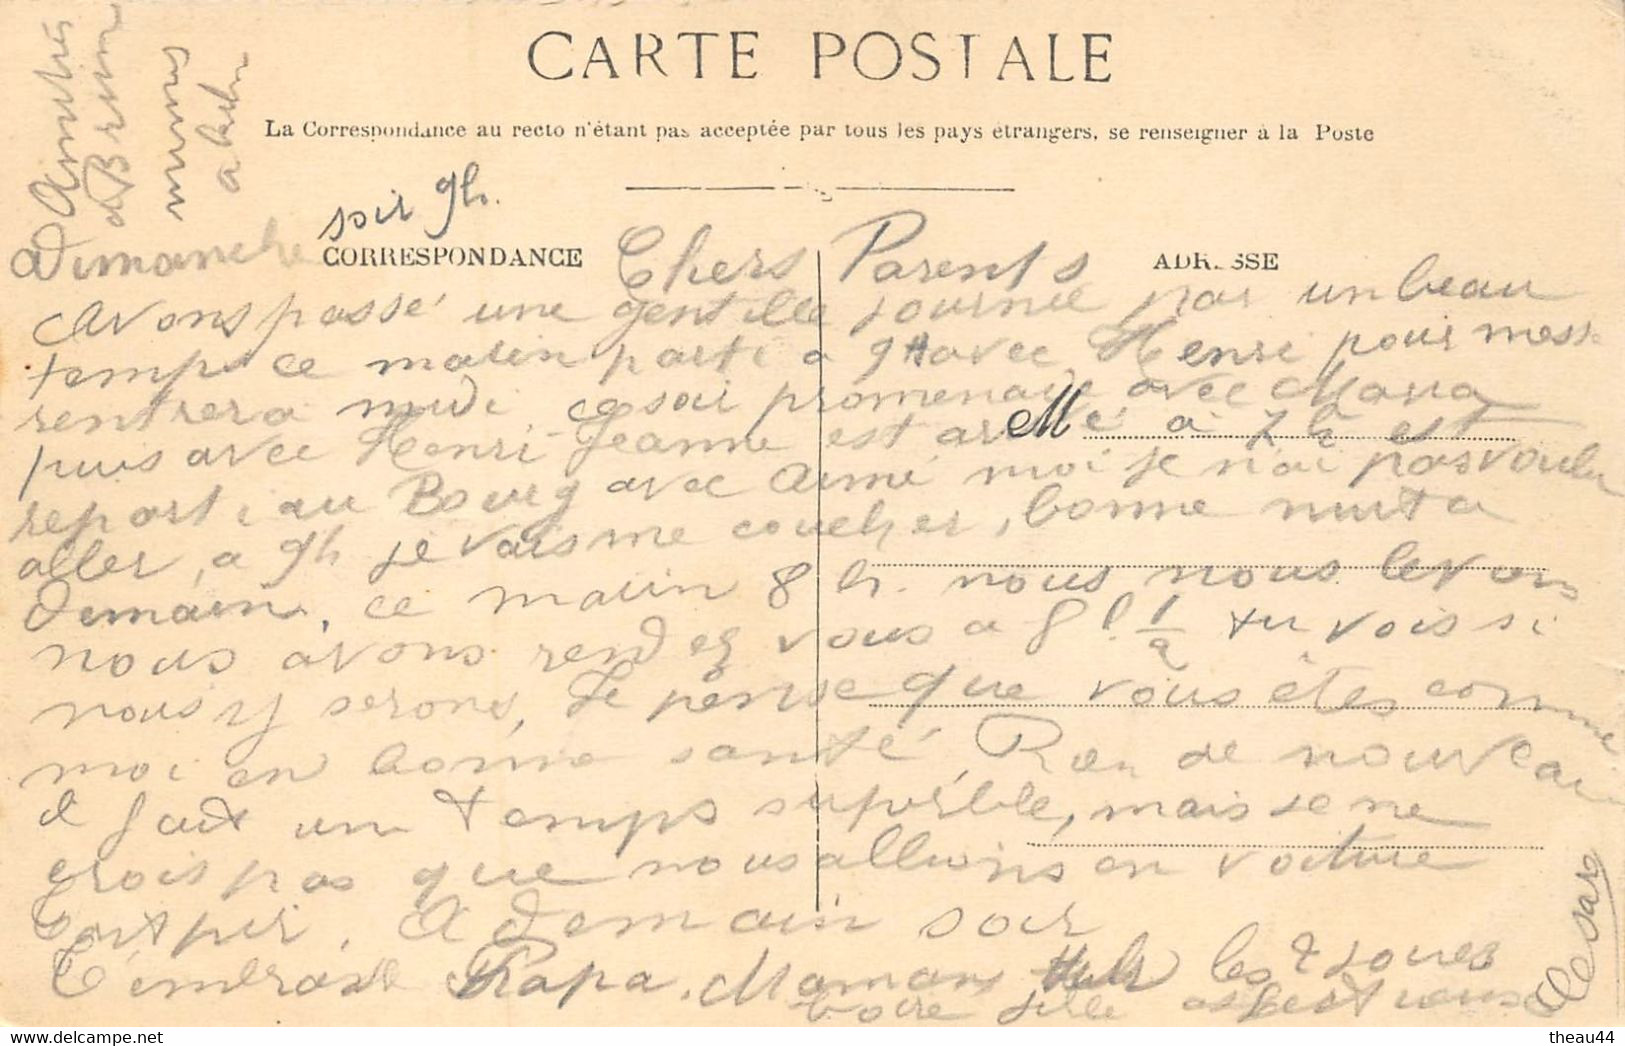 CARTE POSTALE
La Correspondance au recto n'étant pas acceptée par tous les pays étrangers, se renseigner à la Poste
Dimanche soir 9h.
CORRESPONDANCE
ADRESSE
Chers Parents
Avons passé une gentille journée par un beau
temps ce matin parti a 9H avec Henri pour messe
rentrer a midi ce soir promenade avec Maria
puis avec Henri Jeanne est a 7h est
M
reparti au Bourg avec Aimé moi je n'ai pas voulu
aller, a 9h je vais me coucher, bonne nuit a
Demain, ce matin 8 h. nous nous levons
nous avons rendez vous a 8 h 1/2 tu vois si
nous y serons, Je pense que vous êtes comme
moi en bonne santé. Rien de nouveau
il fait un temps superbe, mais je ne
crois pas que nous allions en voiture
tant pir. A demain soir
T'embrasse Papa. Maman les 2 joues
votre fille
theau44